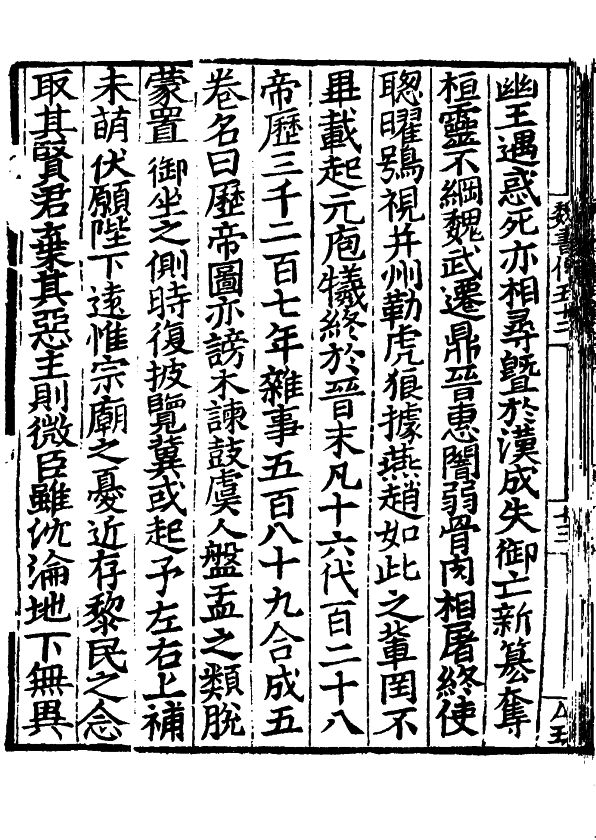 魏書傳五十二
十三
幽王遇惑死亦相尋暨於漢成失御亡新篡奪
桓靈不綱魏武遷鼎晉惠闇弱骨肉相屠終使
聰曜鴞視并州勒虎狼據燕趙如此之輩罔不
畢載起元庖犧終於晉末凡十六代百二十八
帝歷三千二百七年雜事五百八十九合成五
卷名曰歷帝圖亦謗木諫鼓虞人盤盂之類脫
蒙置 御坐之側時復披覽冀或起予左右上補
未萌伏願陛下遠惟宗廟之憂近存黎民之念
取其賢君棄其惡主則微臣雖沉淪地下無異